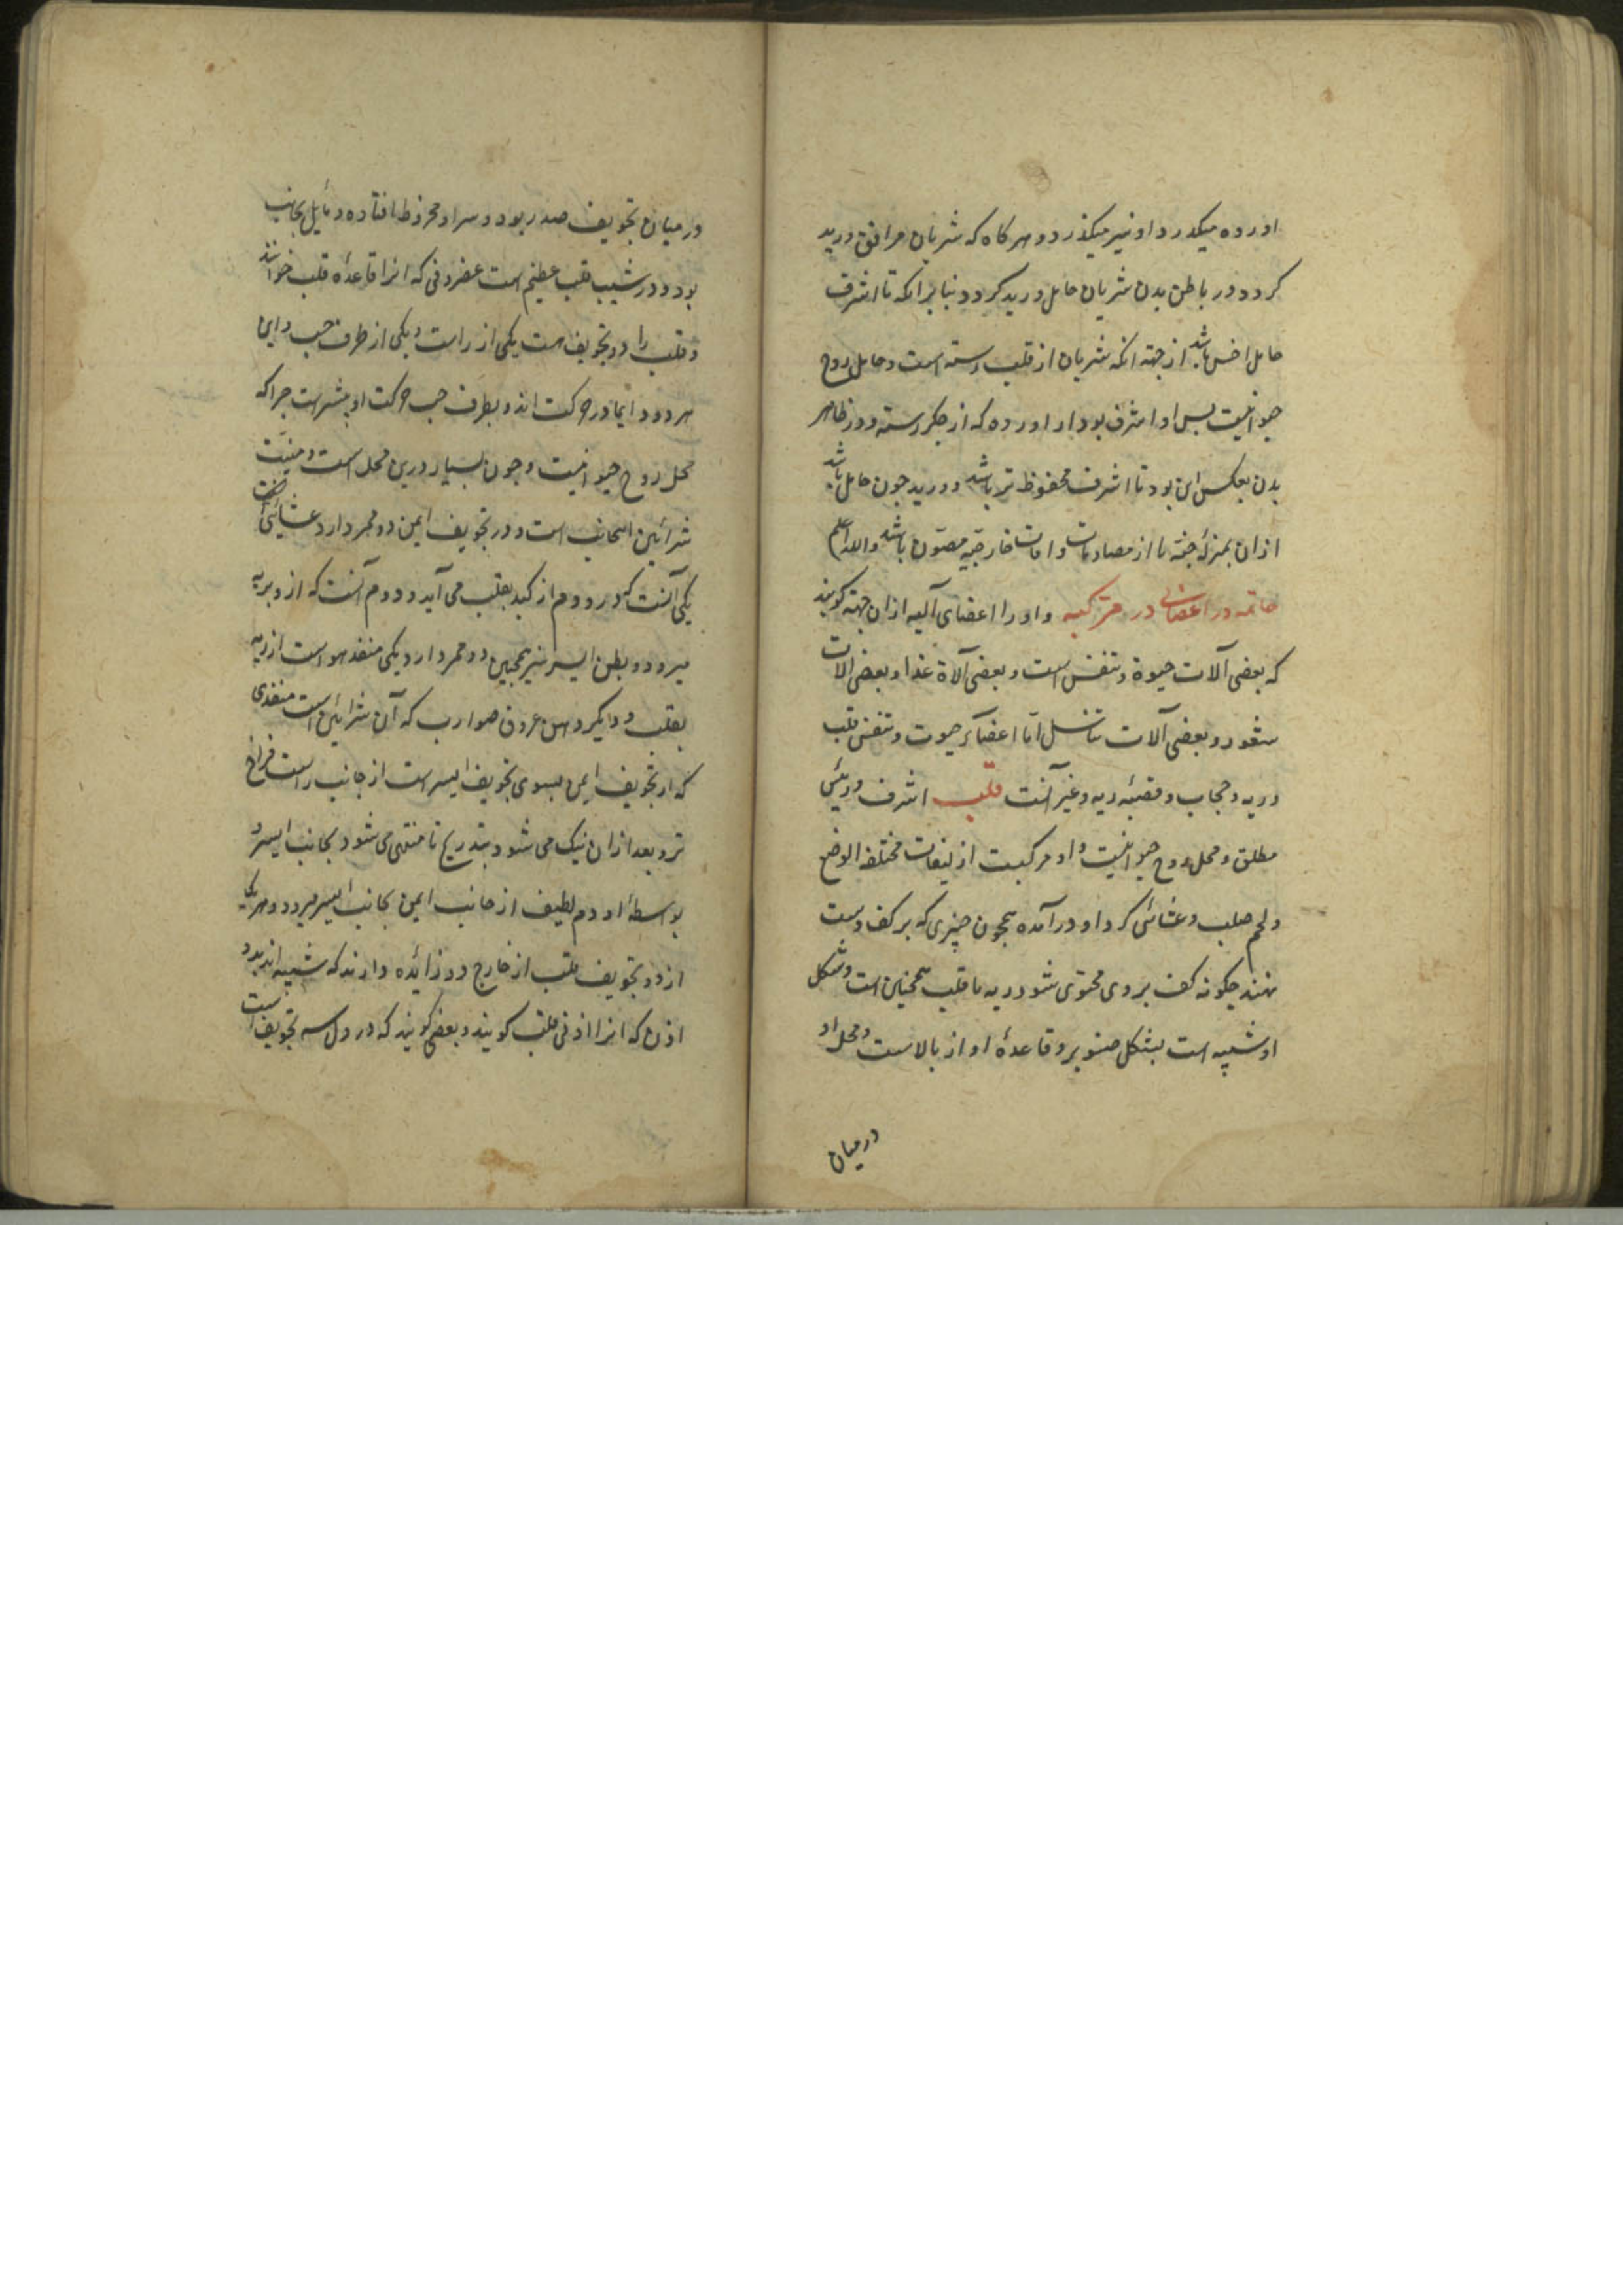 اورده میکذرد او نیز میکذرد و هرکاه که شریان مرافق ورید
کردد در باطن بدن شریان حامل ورید کردد بنابرانکه تا اشرف
حامل اخس باشد از جهته انکه شریان از قلب رسته است و حامل روح
حیوانیست بس او اشرف بود از اورده که از جکر رسته و در ظاهر
بدن بعکس این بود تا اشرف محفوظ تر باشد و ورید چون حامل باشد
ازان بمنزلهٔ جنّه تا از مصادمات و افات خارجیّه مصون باشد والله اعلم
خاتمه در اعضائی مرکبه و او را اعضای آلیه ازان جهته کویند
که بعضی آلات حیوة و تنفس است و بعضی آلاة غذا و بعضی الات
شعور و بعضی آلات تناسل امّا اعضاکر حیوت و تنفس قلب
و ریه و حجاب و قصبهٔ ریه و غیر آنست قلب اشرف و رئیس
مطلق و محل روح حیوانیست و او مرکبست از لیفات مختلفه الوضع
و لحم صلب و غشائی کرد او درآمده همچون چیزی که بر کف دست
نهند چکونه کف بر وی محتوی شود ریه با قلب همچنین است و شکل
او شبیه است بشکل صنوبر و قاعدهٔ او از بالاست و محل او
درمیان
درمیان تجویف صدر بود و سر او مخروط افتاده و مایل بجانب
بود و در شیب قلب عظیم است غضروفی که انرا قاعدهٔ قلب خوانند
و قلب را دو تجویف است یکی از راست و یکی از طرف چب و این
هر دو دایما در حرکت اند و بطرف چب حرکت او بیشتر است چرا که
محل روح حیوانیست و چون بسیار درین محل است و منبت
شرائین انجانب است و در تجویف ایمن دو مجر دارد غشائی
یکی آنست که درو دم از کبد بقلب می آید و دوم آنست که ازو بریه
میرود و بطن ایسر نیز همچنین دو ممر دارد یکی منفذ هواست از ریه
بقلب و دیکر دهن عروق ضوارب که آن شرائین است منفذی
که از تجویف ایمن بسوی تجویف ایسر است از جانب راست فراخ
تر و بعد ازان تنک می شود بتدریج تا منتهی می شود بجانب ایسر و
بواسطهٔ او دم لطیف از جانب ایمن بجانب ایسر میرود و هر یکی
از دو تجویف قلب از خارج دو زائده دارند که شبیه اند بدو
اذن که انرا اذنی قلب کویند و بعضی کویند که در دل سه تجویف است